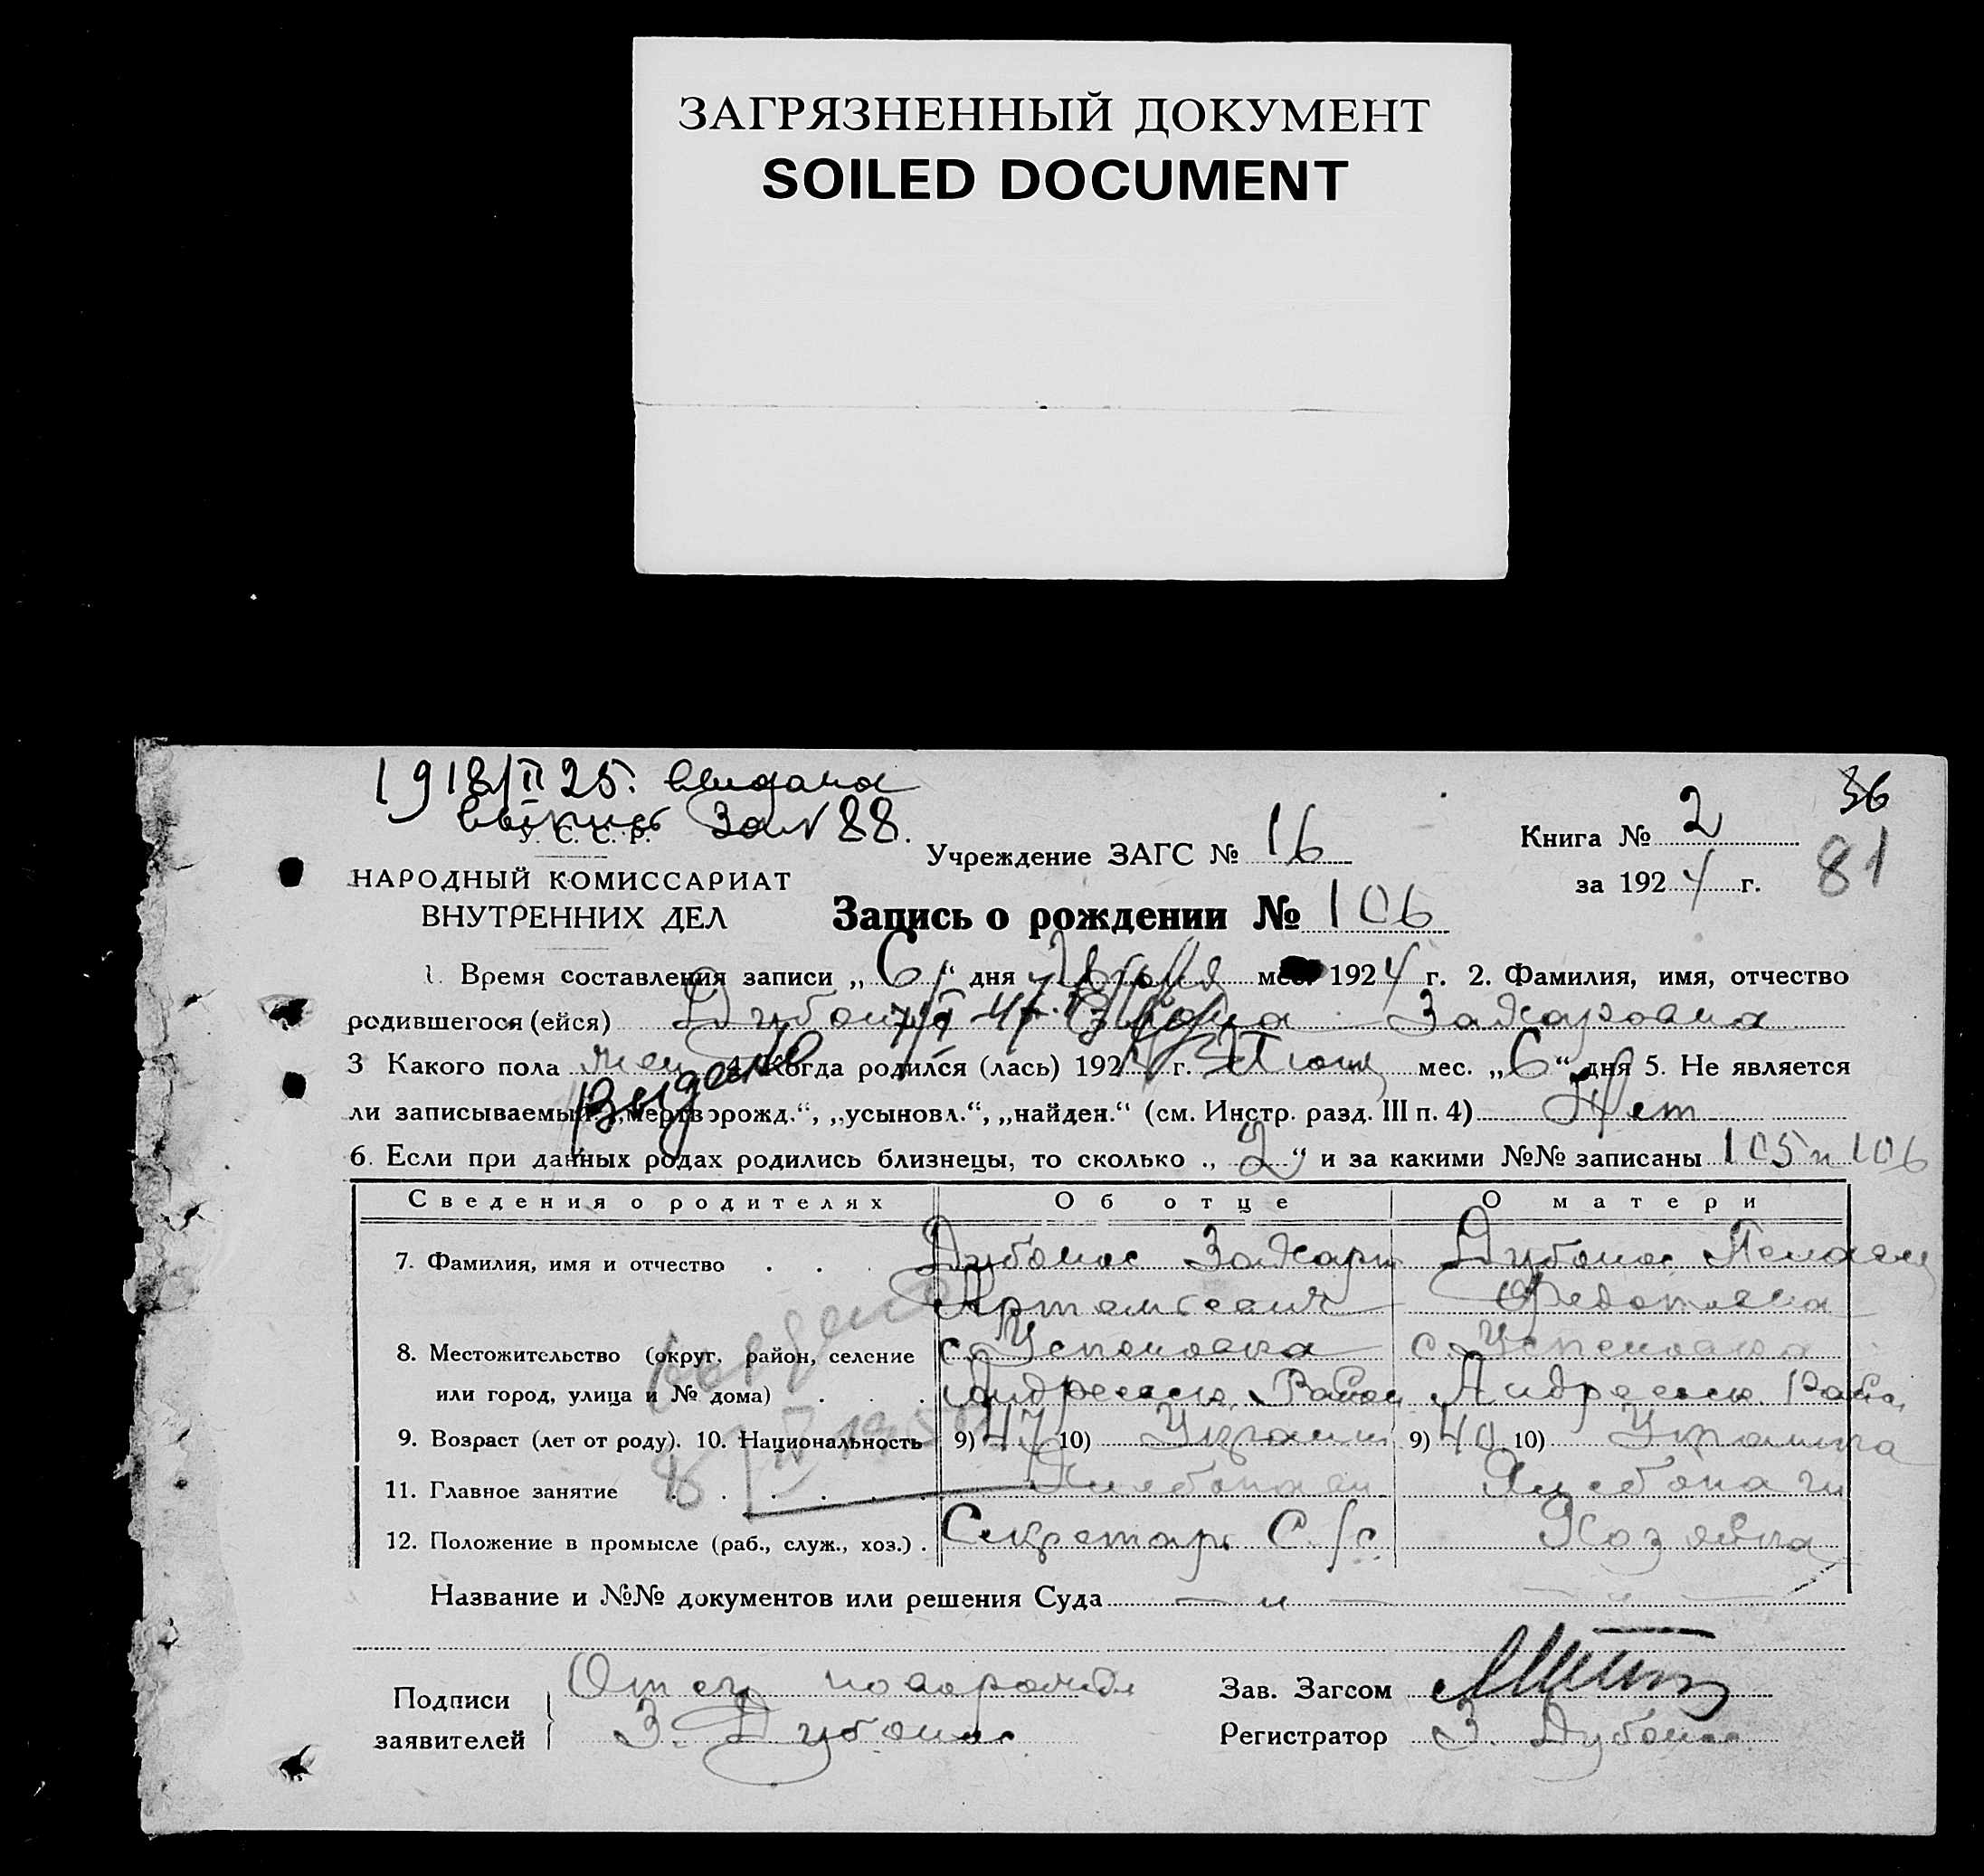 ЗАГРЯЗНЕННЫЙ ДОКУМЕНТ
SOILED DOCUMENT
1918/II 25.
88.
36
У. С. С. Р.
Учреждение ЗАГС № 16
Книга № 2
за 1924 г.
81
НАРОДНЫЙ КОМИССАРИАТ
ВНУТРЕННИХ ДЕЛ
Запись о рождении № 106
1. Время составления записи „6“ дня мес. 1924 г. 2. Фамилия, имя, отчество
родившегося (ейся) Захаровна
3 Какого пола жен 4. Когда родился (лась) 192 г. мес. „6“ дня 5. Не является
Выдано
ли записываемый: „мертворожд.“, „усыновл.“, „найден.“ (см. Инстр. разд. III п. 4) Нет
6. Если при данных родах родились близнецы, то сколько „2“ и за какими №№ записаны 105 и 106
Сведения о родителях Об отце О матери
7. Фамилия, имя и отчество . . . Дубонос Захарий Дубонос Пелагея
Артамоеви Федотовна
8. Местожительство (округ, район, селение с. Успеновка с. Успеновка
или город, улица и № дома) . . . Андреевск. Район Андреевск. Район
9. Возраст (лет от роду). 10. Национальность 9) 47 10) Украин 9) 40 10) Украинка
11. Главное занятие . . . . . Хлебопаш. Хлебопаш
12. Положение в промысле (раб., служ., хоз.) . Секретарь С/с. Хозяйка
Название и №№ документов или решения Суда — „ — — „ —
Подписи Отец Зав. Загсом
заявителей З. Дубонос Регистратор З. Дубонос